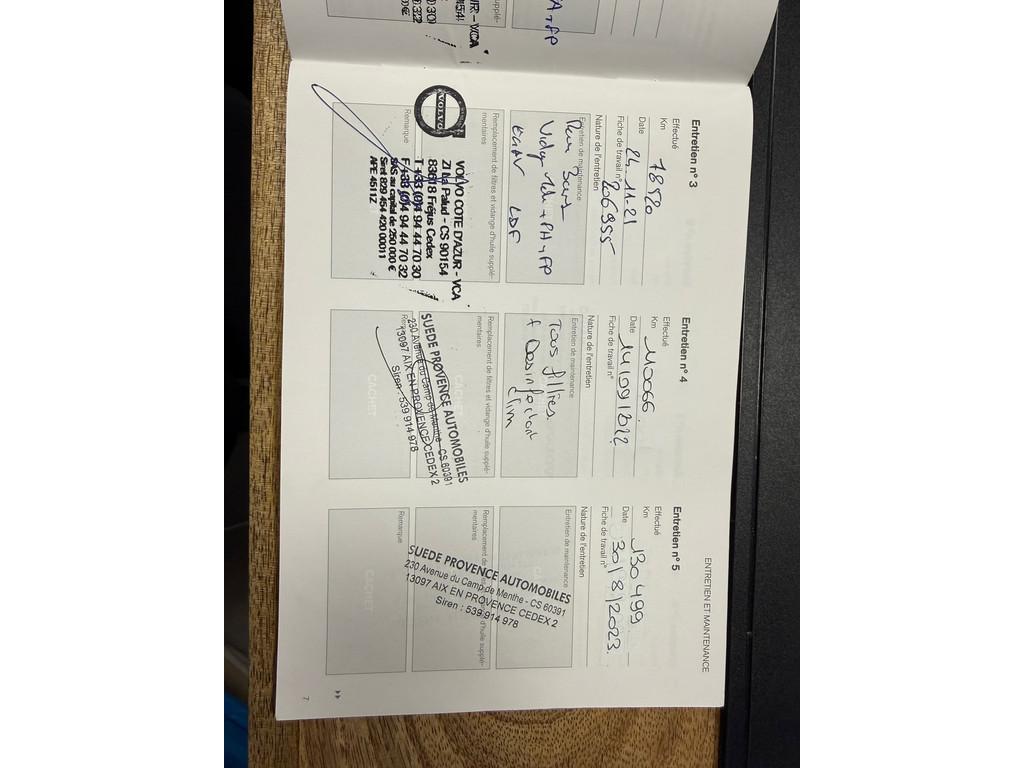 ENTRETIEN ET MAINTENANCE
Entretien n° 3
Effectué
Km 78920
Date 24-11-21
Fiche de travail n° 206955
Nature de l'entretien
Entretien de maintenance
+ PH + FP
LDF
Remplacement de filtres et vidange d'huile supplé-
mentaires
Remarque
VOLVO
VOLVO COTE D'AZUR - VCA
ZI La Palud - CS 90154
83618 Fréjus Cedex
T +33 (0)4 94 44 70 30
F +33 (0)4 94 44 70 32
SAS au capital de 250 000 €
Siret 829 454 420 00011
APE 4511Z
Entretien n° 4
Effectué
Km 110066
Date 14/09/2022
Fiche de travail n°
Nature de l'entretien
Entretien de maintenance
Tous filtres
+ Desinfectant
clim
Remplacement de filtres et vidange d'huile supplé-
mentaires
SUEDE PROVENCE AUTOMOBILES
230 Avenue du Camp de Menthe - CS 60391
13097 AIX EN PROVENCE CEDEX 2
Siren : 539 914 978
CACHET
Entretien n° 5
Effectué
Km 130499
Date 30/8/2023.
Fiche de travail n°
Nature de l'entretien
Entretien de maintenance
Remplacement de filtres et vidange d'huile supplé-
mentaires
Remarque
SUEDE PROVENCE AUTOMOBILES
230 Avenue du Camp de Menthe - CS 60391
13097 AIX EN PROVENCE CEDEX 2
Siren : 539 914 978
CACHET
7